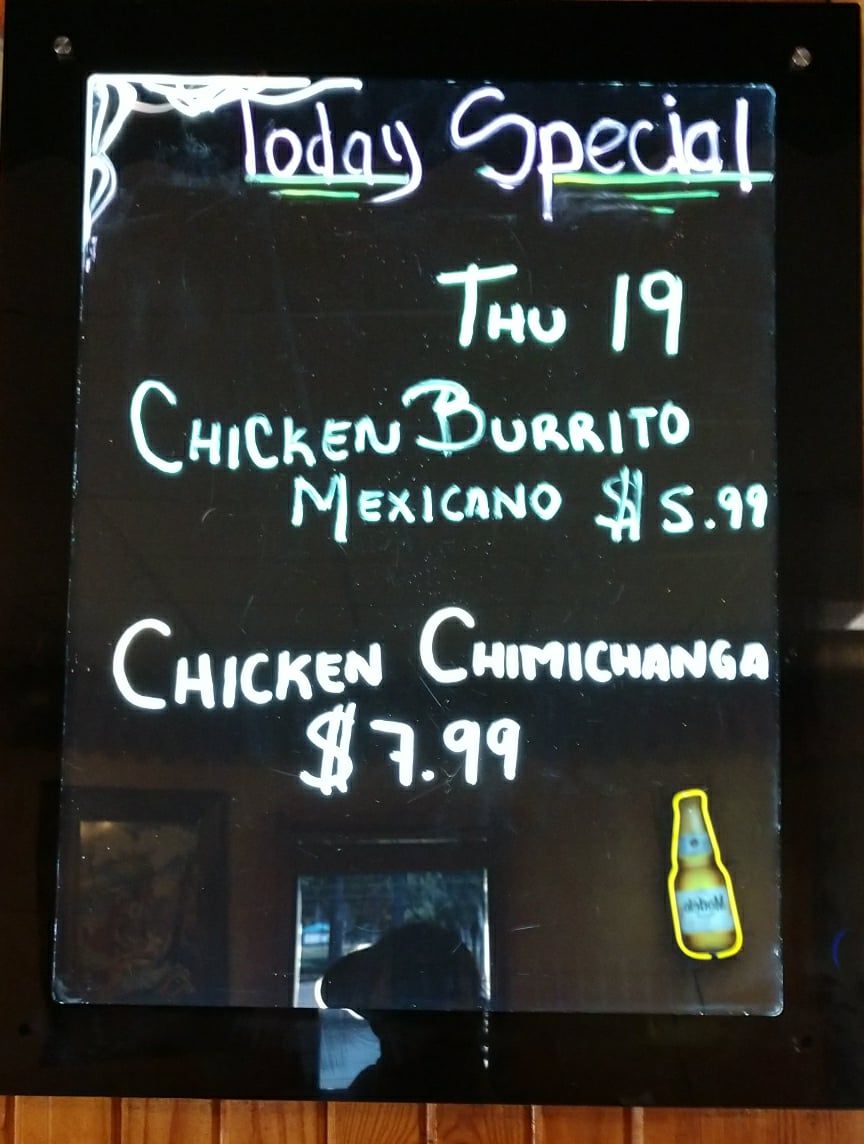 Today Special
THU 19
CHICKEN BURRITO
MEXICANO $5.99
CHICKEN CHIMICHANGA
$7.99
Modelo